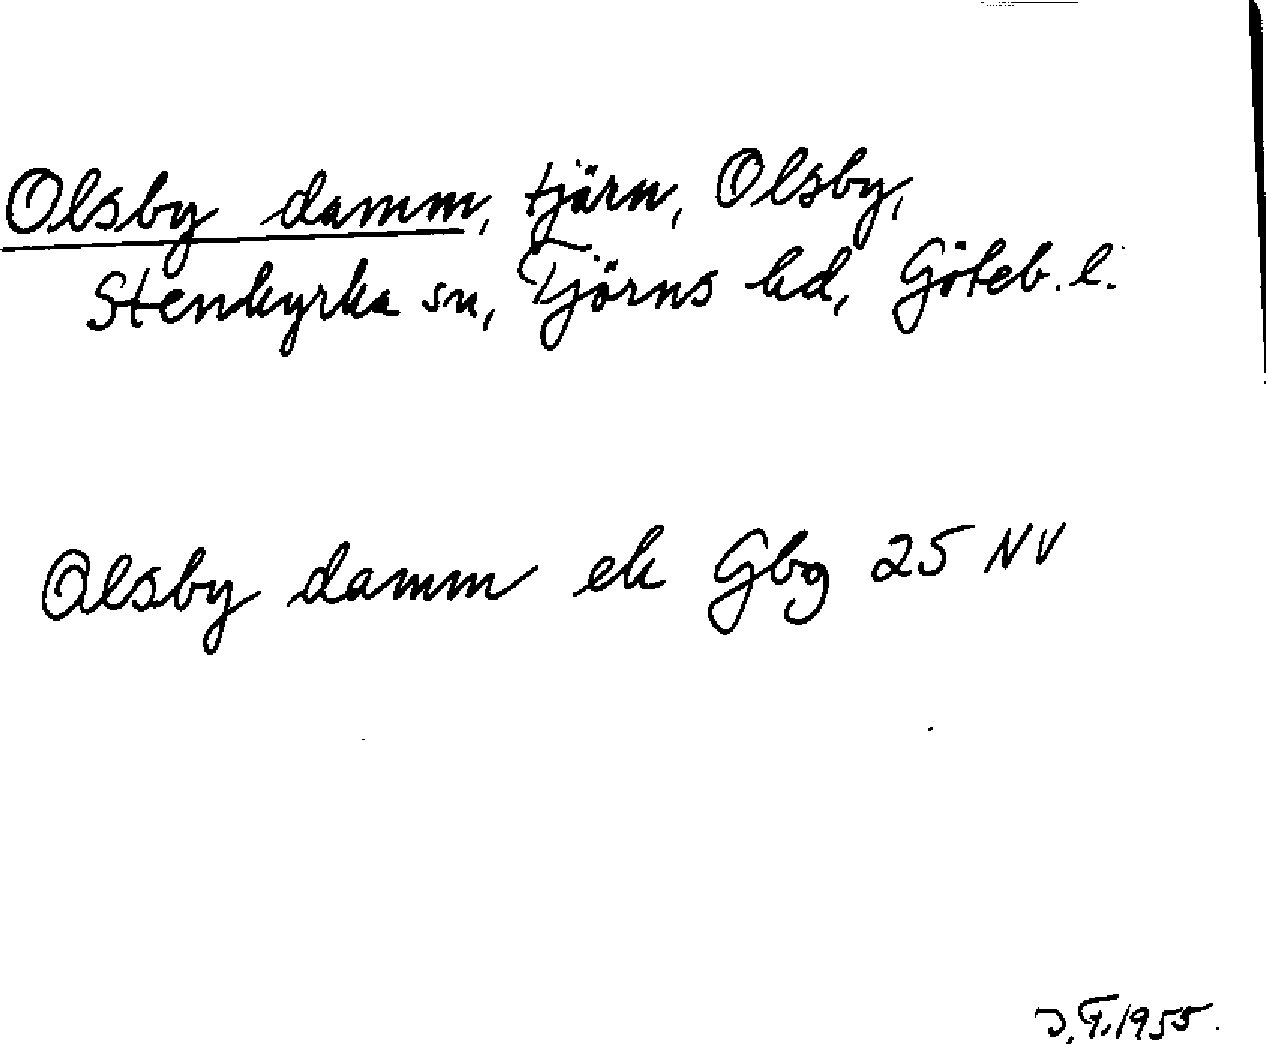 Olsby damm, tjärn, Olsby,
Stenkyrka sn, Tjörns hd, Göteb. l.
Olsby damm ek Gbg 25 NV
1955.